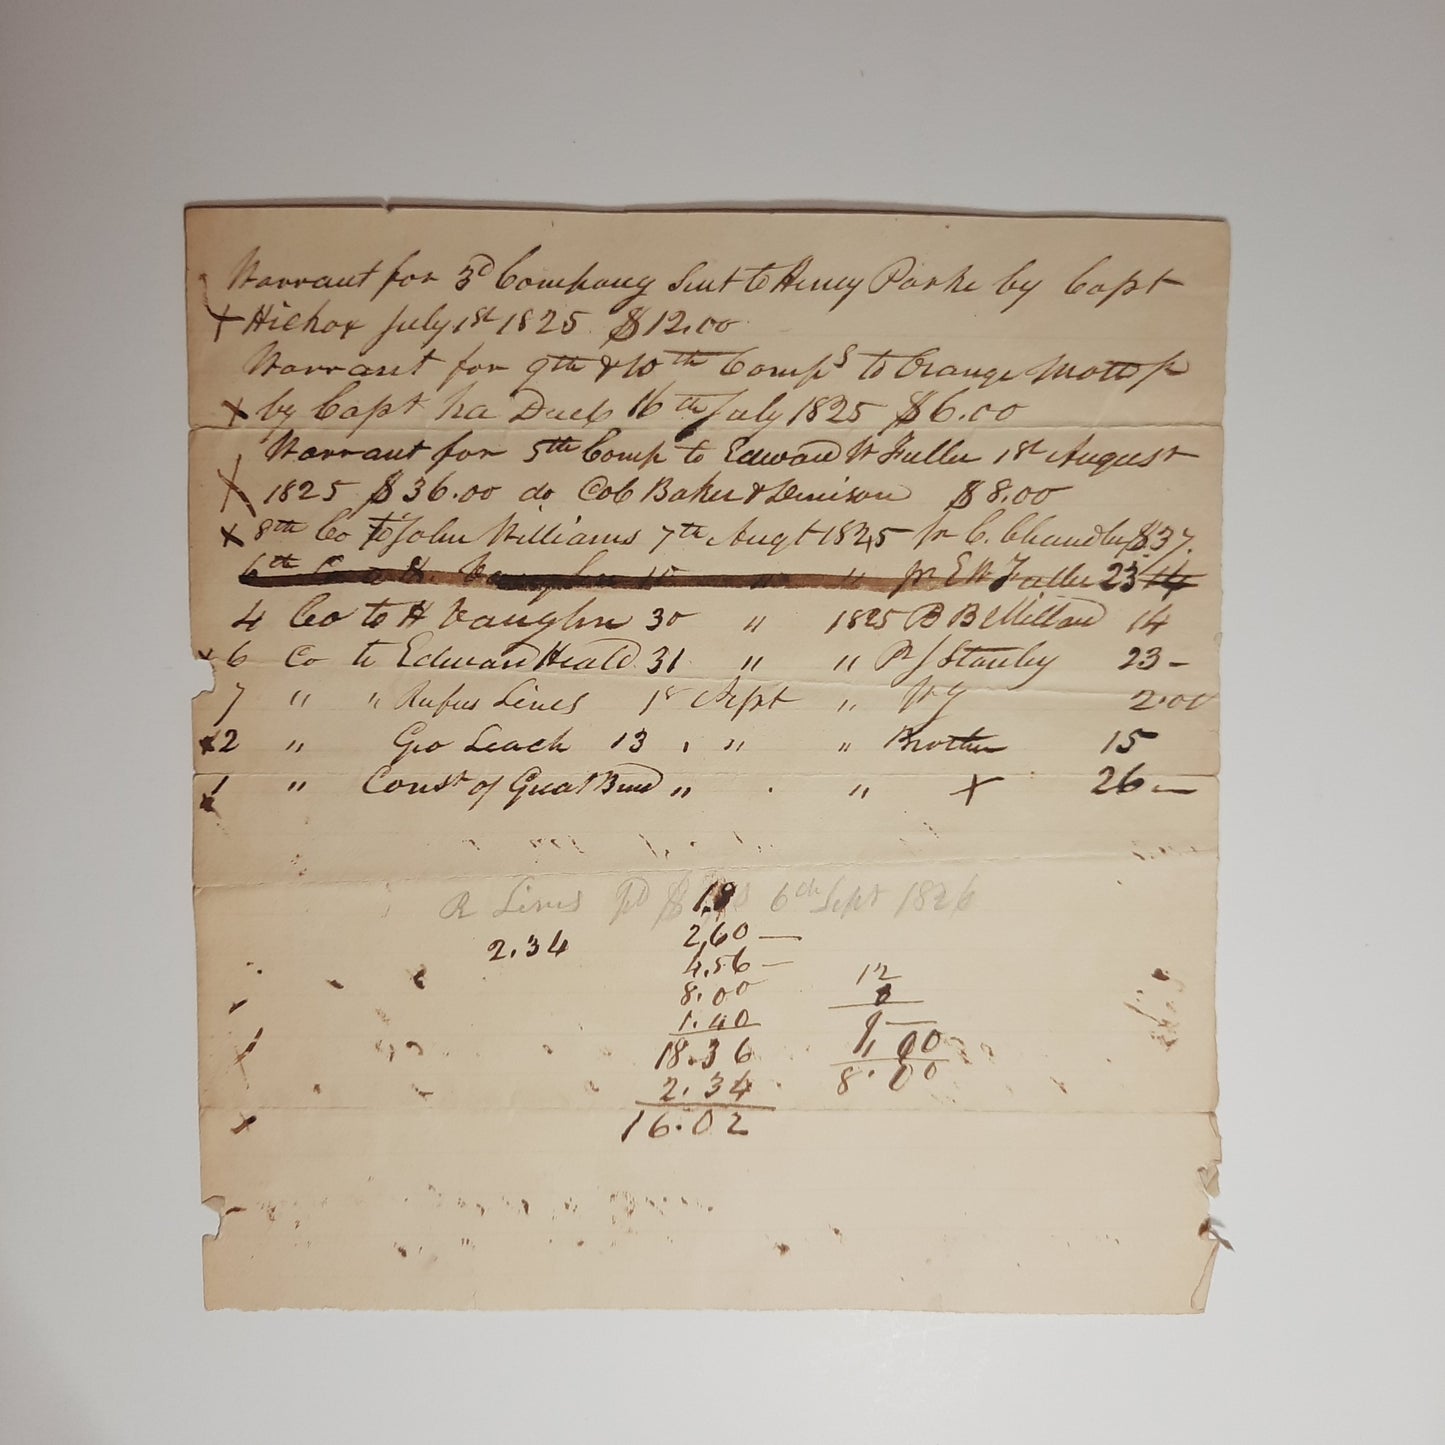 Warrant for 3d Company Sent to Henry Parke by Capt
X Hickox July 1st 1825 $12.00
Warrant for 9th & 10th Comps to Orange Mott
X by Capt Ira Duel 16th July 1825 $6.00
Warrant for 5th Comp to Edward W Fuller 1st August
X 1825 $36.00 do Cob Baker & Denison $8.00
X 8th Co to John Williams 7th Augt 1825 pr C. Chandler $37.
6th Co to H. Vaughn 15 " " pr E W Fuller 23
4 Co to H Vaughn 30 " 1825 B B 14
x 6 Co to Edward Heald 31 " " P J Stanley 23 -
7 " " Rufus Lines 1st Sept " 2.00
x 2 " Geo Leach 13 " " Brother 15
x 1 " Const of Great Bend " " X 26 —
R Lines pd $ 6th Sept 1826
2.34
2.60 —
4.56 —
8.00
1.40
18.36
2.34
16.02
12
9 —
1.00
8.00
x